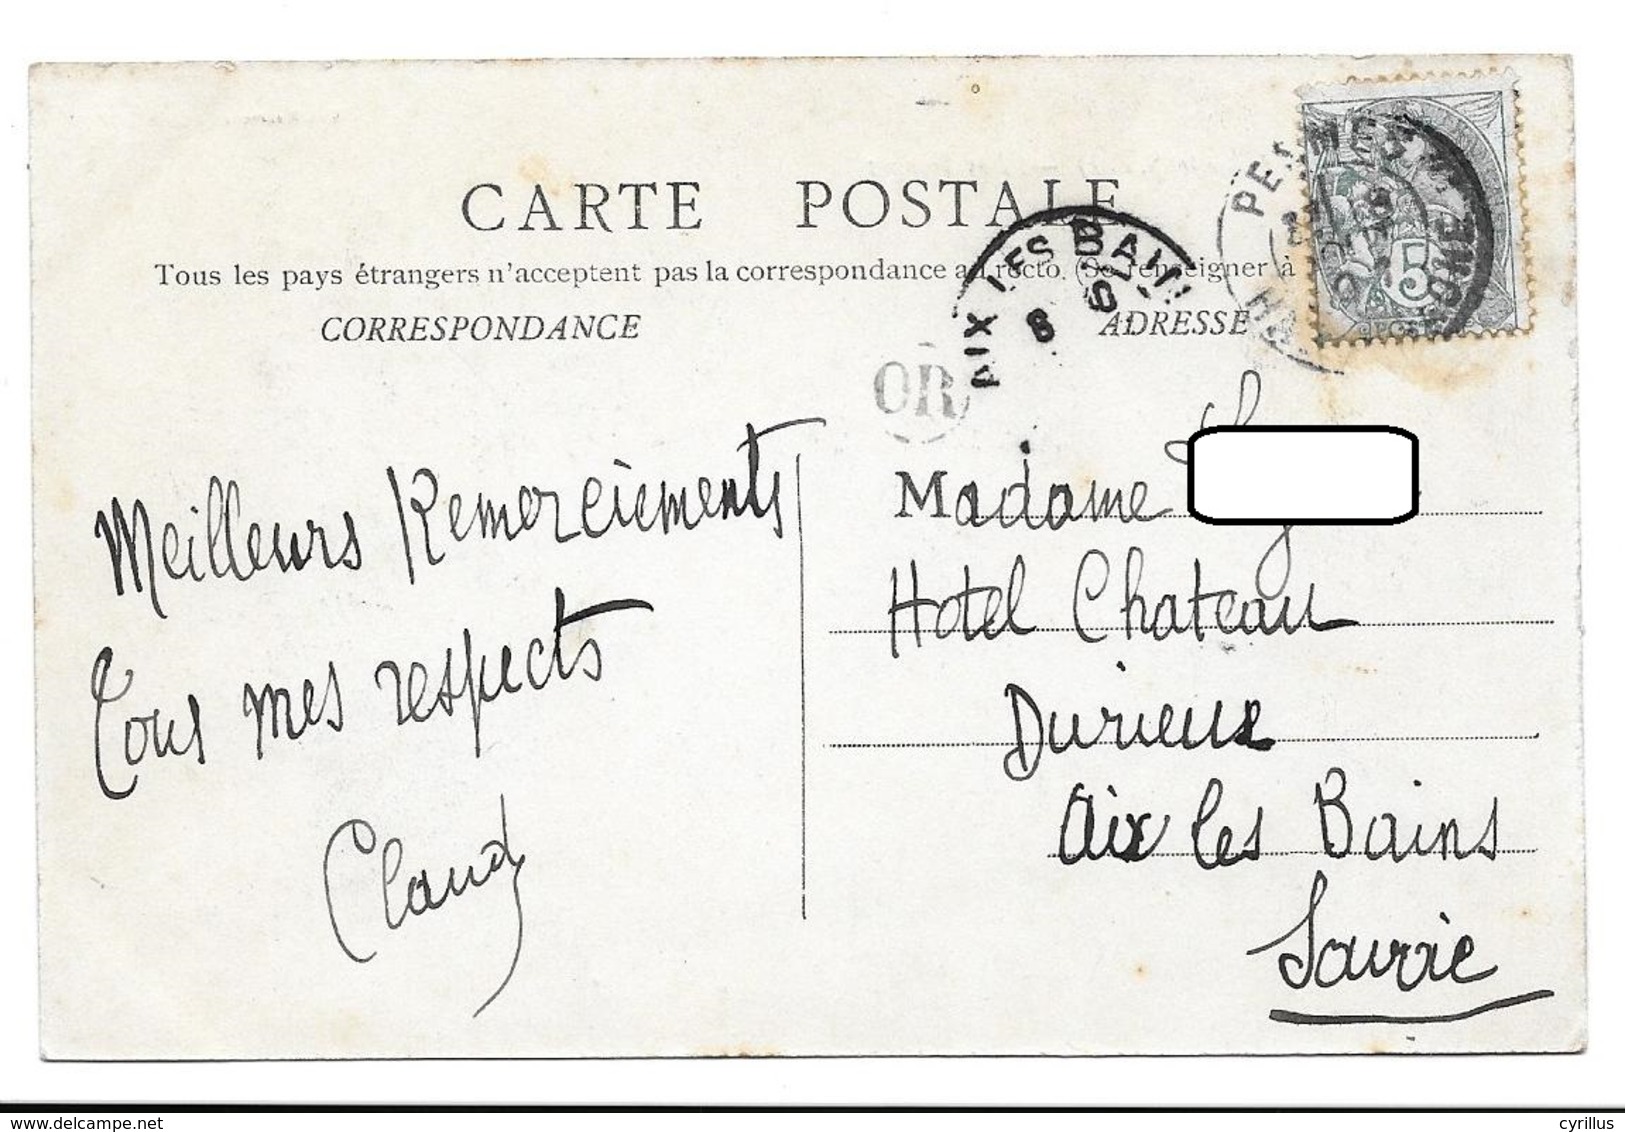 CARTE POSTALE
Tous les pays étrangers n'acceptent pas la correspondance au recto. (Se renseigner à
CORRESPONDANCE
ADRESSE
AIX LES BAINS
8
OR
5
Meilleurs Remerciements
Tous mes respects
Claud
Madame
Hotel Chateau
Durieux
Aix les Bains
Savoie
cyrillus